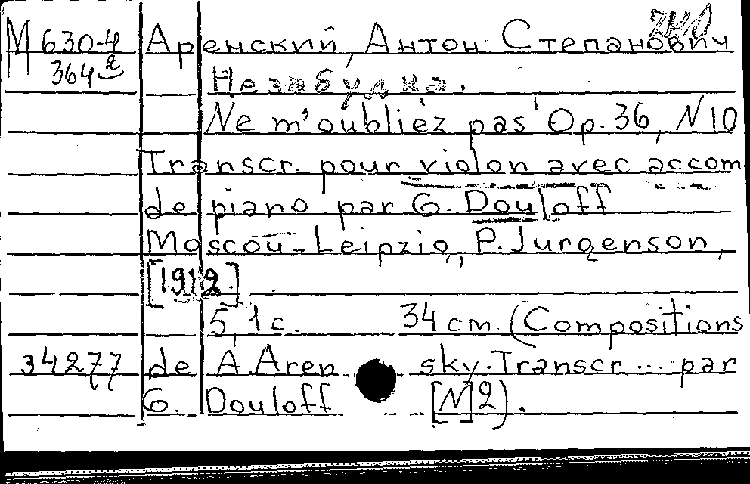 М 630-4 Аренский, Антон Степанович
364² Незабудка.
Ne m'oubliez pas Op. 36, N 10
Transcr. pour violon avec accom
de piano par G. Douloff
Moscou-Leipzig, P. Jurgenson,
[1912]
5,1 с. 34 cm. (Compositions
34277 de A. Aren sky. Transcr. ... par
G. Douloff [N 2).